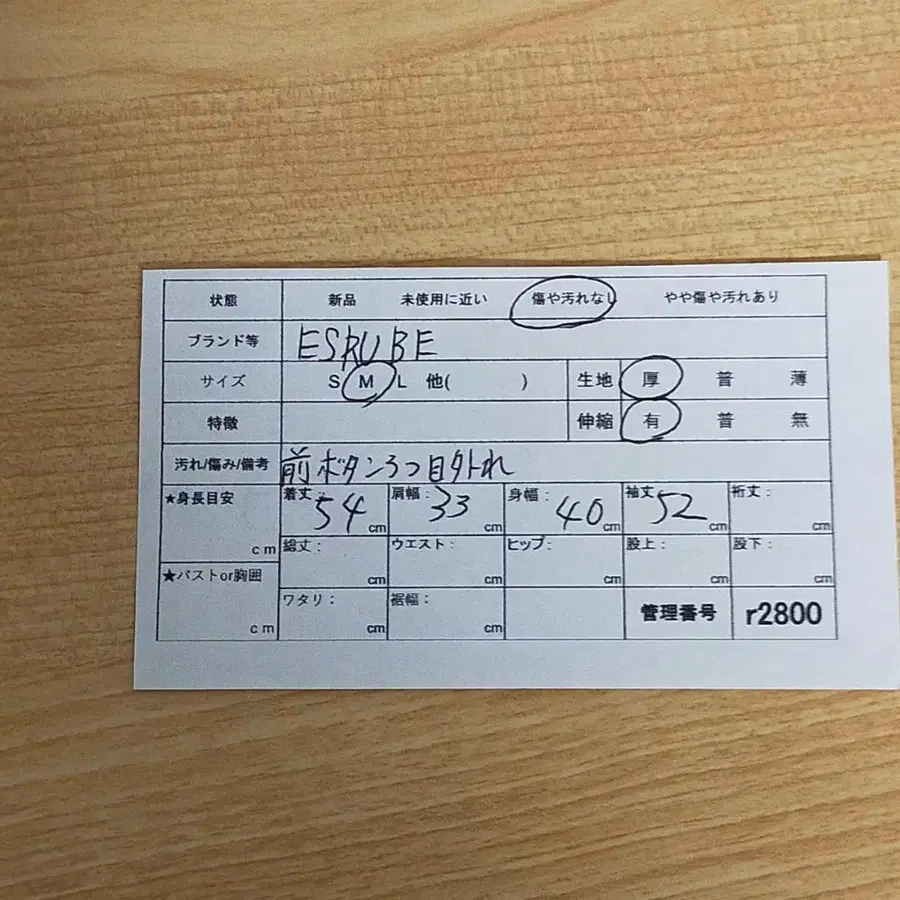 状態 新品 未使用に近い 傷や汚れなし やや傷や汚れあり
ブランド等 ESRUBE
サイズ S M L 他( ) 生地 厚 普 薄
特徴 伸縮 有 普 無
汚れ/傷み/備考 前ボタン3つ目外れ
★身長目安 cm 着丈: 54 cm 肩幅: 33 cm 身幅: 40 cm 袖丈: 52 cm 裄丈: cm
総丈: cm ウエスト: cm ヒップ: cm 股上: cm 股下: cm
★バストor胸囲 cm ワタリ: cm 裾幅: cm 管理番号 r2800